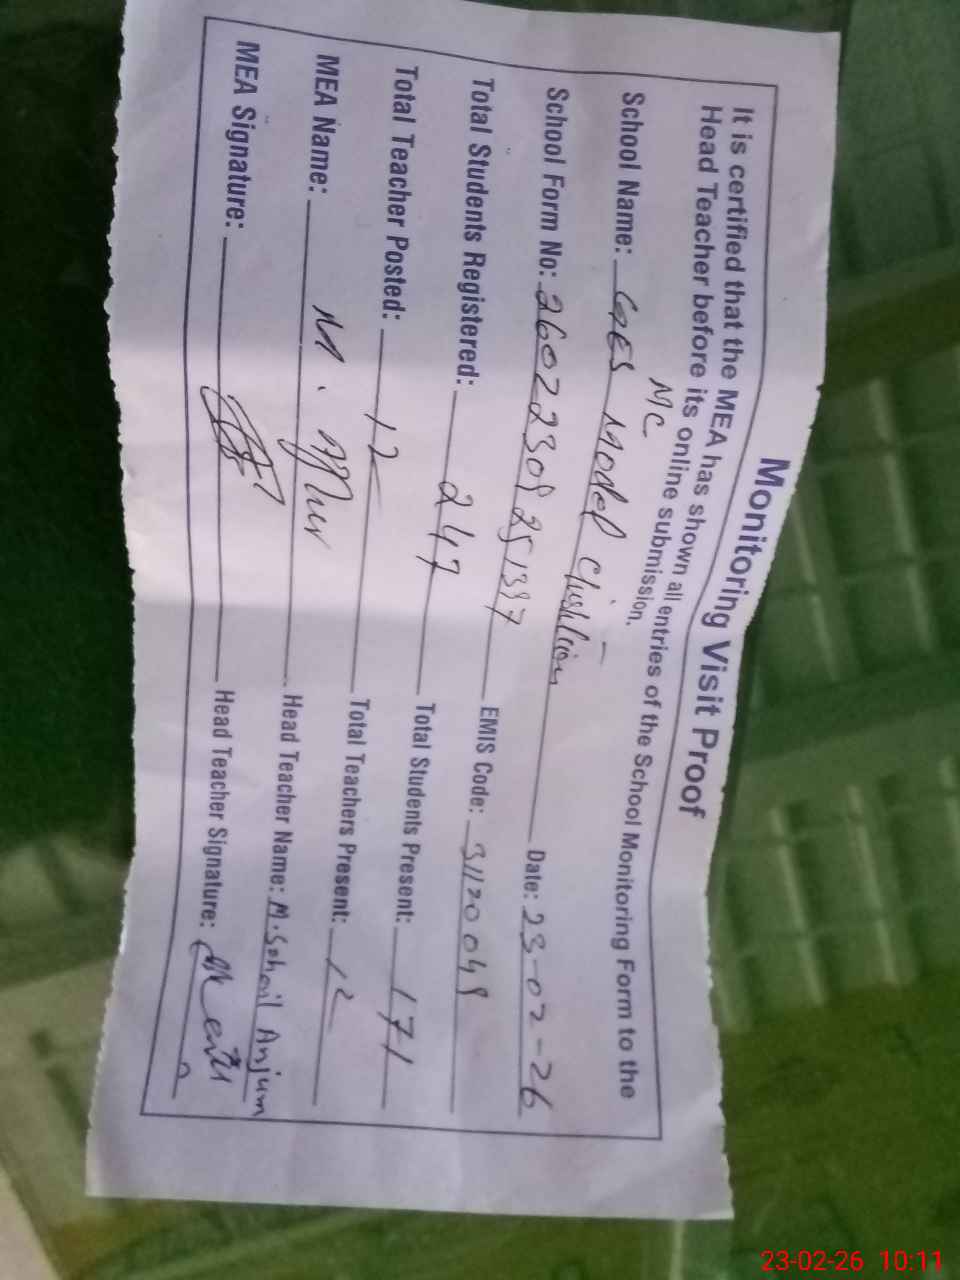 Monitoring Visit Proof
It is certified that the MEA has shown all entries of the School Monitoring Form to the
Head Teacher before its online submission.
MC
School Name: GES Model Chishtian
School Form No: Date: 23-02-26
Total Students Registered: 247 EMIS Code: 31120049
Total Teacher Posted: 12 Total Students Present: 171
MEA Name: M. Total Teachers Present: 12
MEA Signature: Head Teacher Name: M. Sohail Anjum
Head Teacher Signature:
23-02-26 10:11